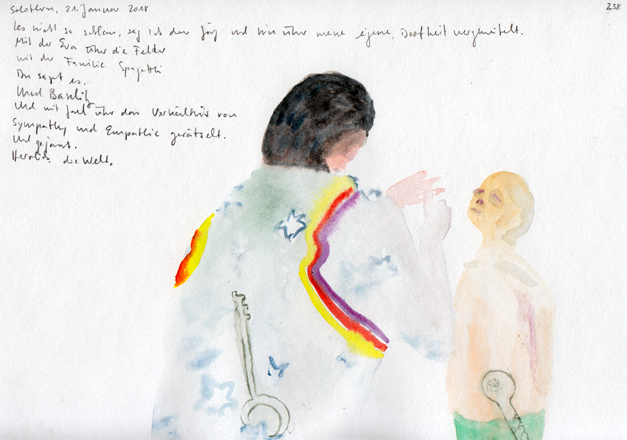 Solothurn, 21. Januar 2018
258
nicht so schlau, sag ich dem Jörg und bin über meine eigene Doofheit vergnügt.
Mit der Eva über die Felder
mit der Familie Spaghetti
Du sagst es.
Und Basilik
Und mit Joel über das Verhältnis von
Sympathy und Empathie gerätselt.
Und gejasst.
die Welt.